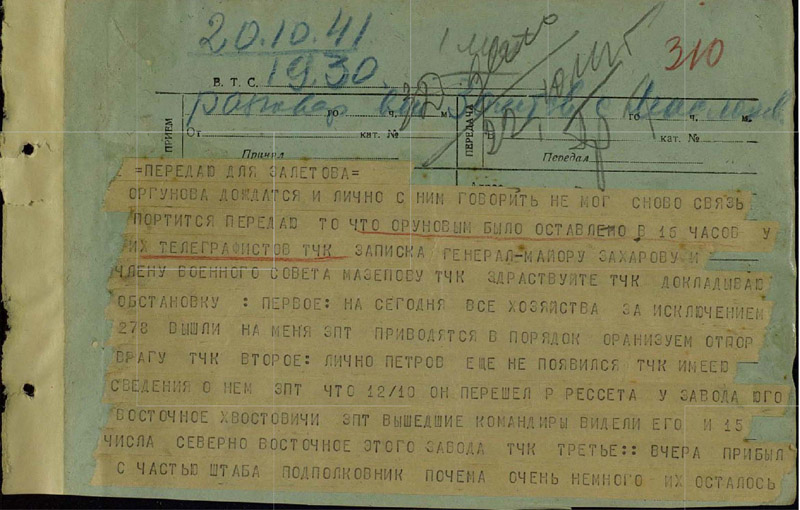 20.10.41
1930
310
В. Т. С.
разговор
го ч. м.
го ч. м.
ПРИЕМ
От кат. №
ПЕРЕДАЧА
кат. №
Принял
Передал
=ПЕРЕДАЮ ДЛЯ ЗАЛЕТОВА=
ОРГУНОВА ДОЖДАТСЯ И ЛИЧНО С НИМ ГОВОРИТЬ НЕ МОГ СНОВО СВЯЗЬ
ПОРТИТСЯ ПЕРЕДАЮ ТО ЧТО ОРУНОВЫМ БЫЛО ОСТАВЛЕМО В 15 ЧАСОВ У
ИХ ТЕЛЕГРАФИСТОВ ТЧК ЗАПИСКА ГЕНЕРАЛ-МАЙОРУ ЗАХАРОВУ И
ЧЛЕНУ ВОЕННОГО СОВЕТА МАЗЕПОВУ ТЧК ЗДРАСТВУЙТЕ ТЧК ДОКЛАДЫВАЮ
ОБСТАНОВКУ : ПЕРВОЕ: НА СЕГОДНЯ ВСЕ ХОЗЯЙСТВА ЗА ИСКЛЮЧЕНИЕМ
278 ВЫШЛИ НА МЕНЯ ЗПТ ПРИВОДЯТСЯ В ПОРЯДОК ОРАНИЗУЕМ ОТПОР
ВРАГУ ТЧК ВТОРОЕ: ЛИЧНО ПЕТРОВ ЕЩЕ НЕ ПОЯВИЛСЯ ТЧК ИМЕЕЮ
СВЕДЕНИЯ О НЕМ ЗПТ ЧТО 12/10 ОН ПЕРЕШЕЛ Р РЕССЕТА У ЗАВОДА ЮГО
ВОСТОЧНОЕ ХВОСТОВИЧИ ЗПТ ВЫШЕДШИЕ КОМАНДИРЫ ВИДЕЛИ ЕГО И 15
ЧИСЛА СЕВЕРНО ВОСТОЧНОЕ ЭТОГО ЗАВОДА ТЧК ТРЕТЬЕ:: ВЧЕРА ПРИБЫЛ
С ЧАСТЬЮ ШТАБА ПОДПОЛКОВНИК ПОЧЕМА ОЧЕНЬ НЕМНОГО ИХ ОСТАЛОСЬ